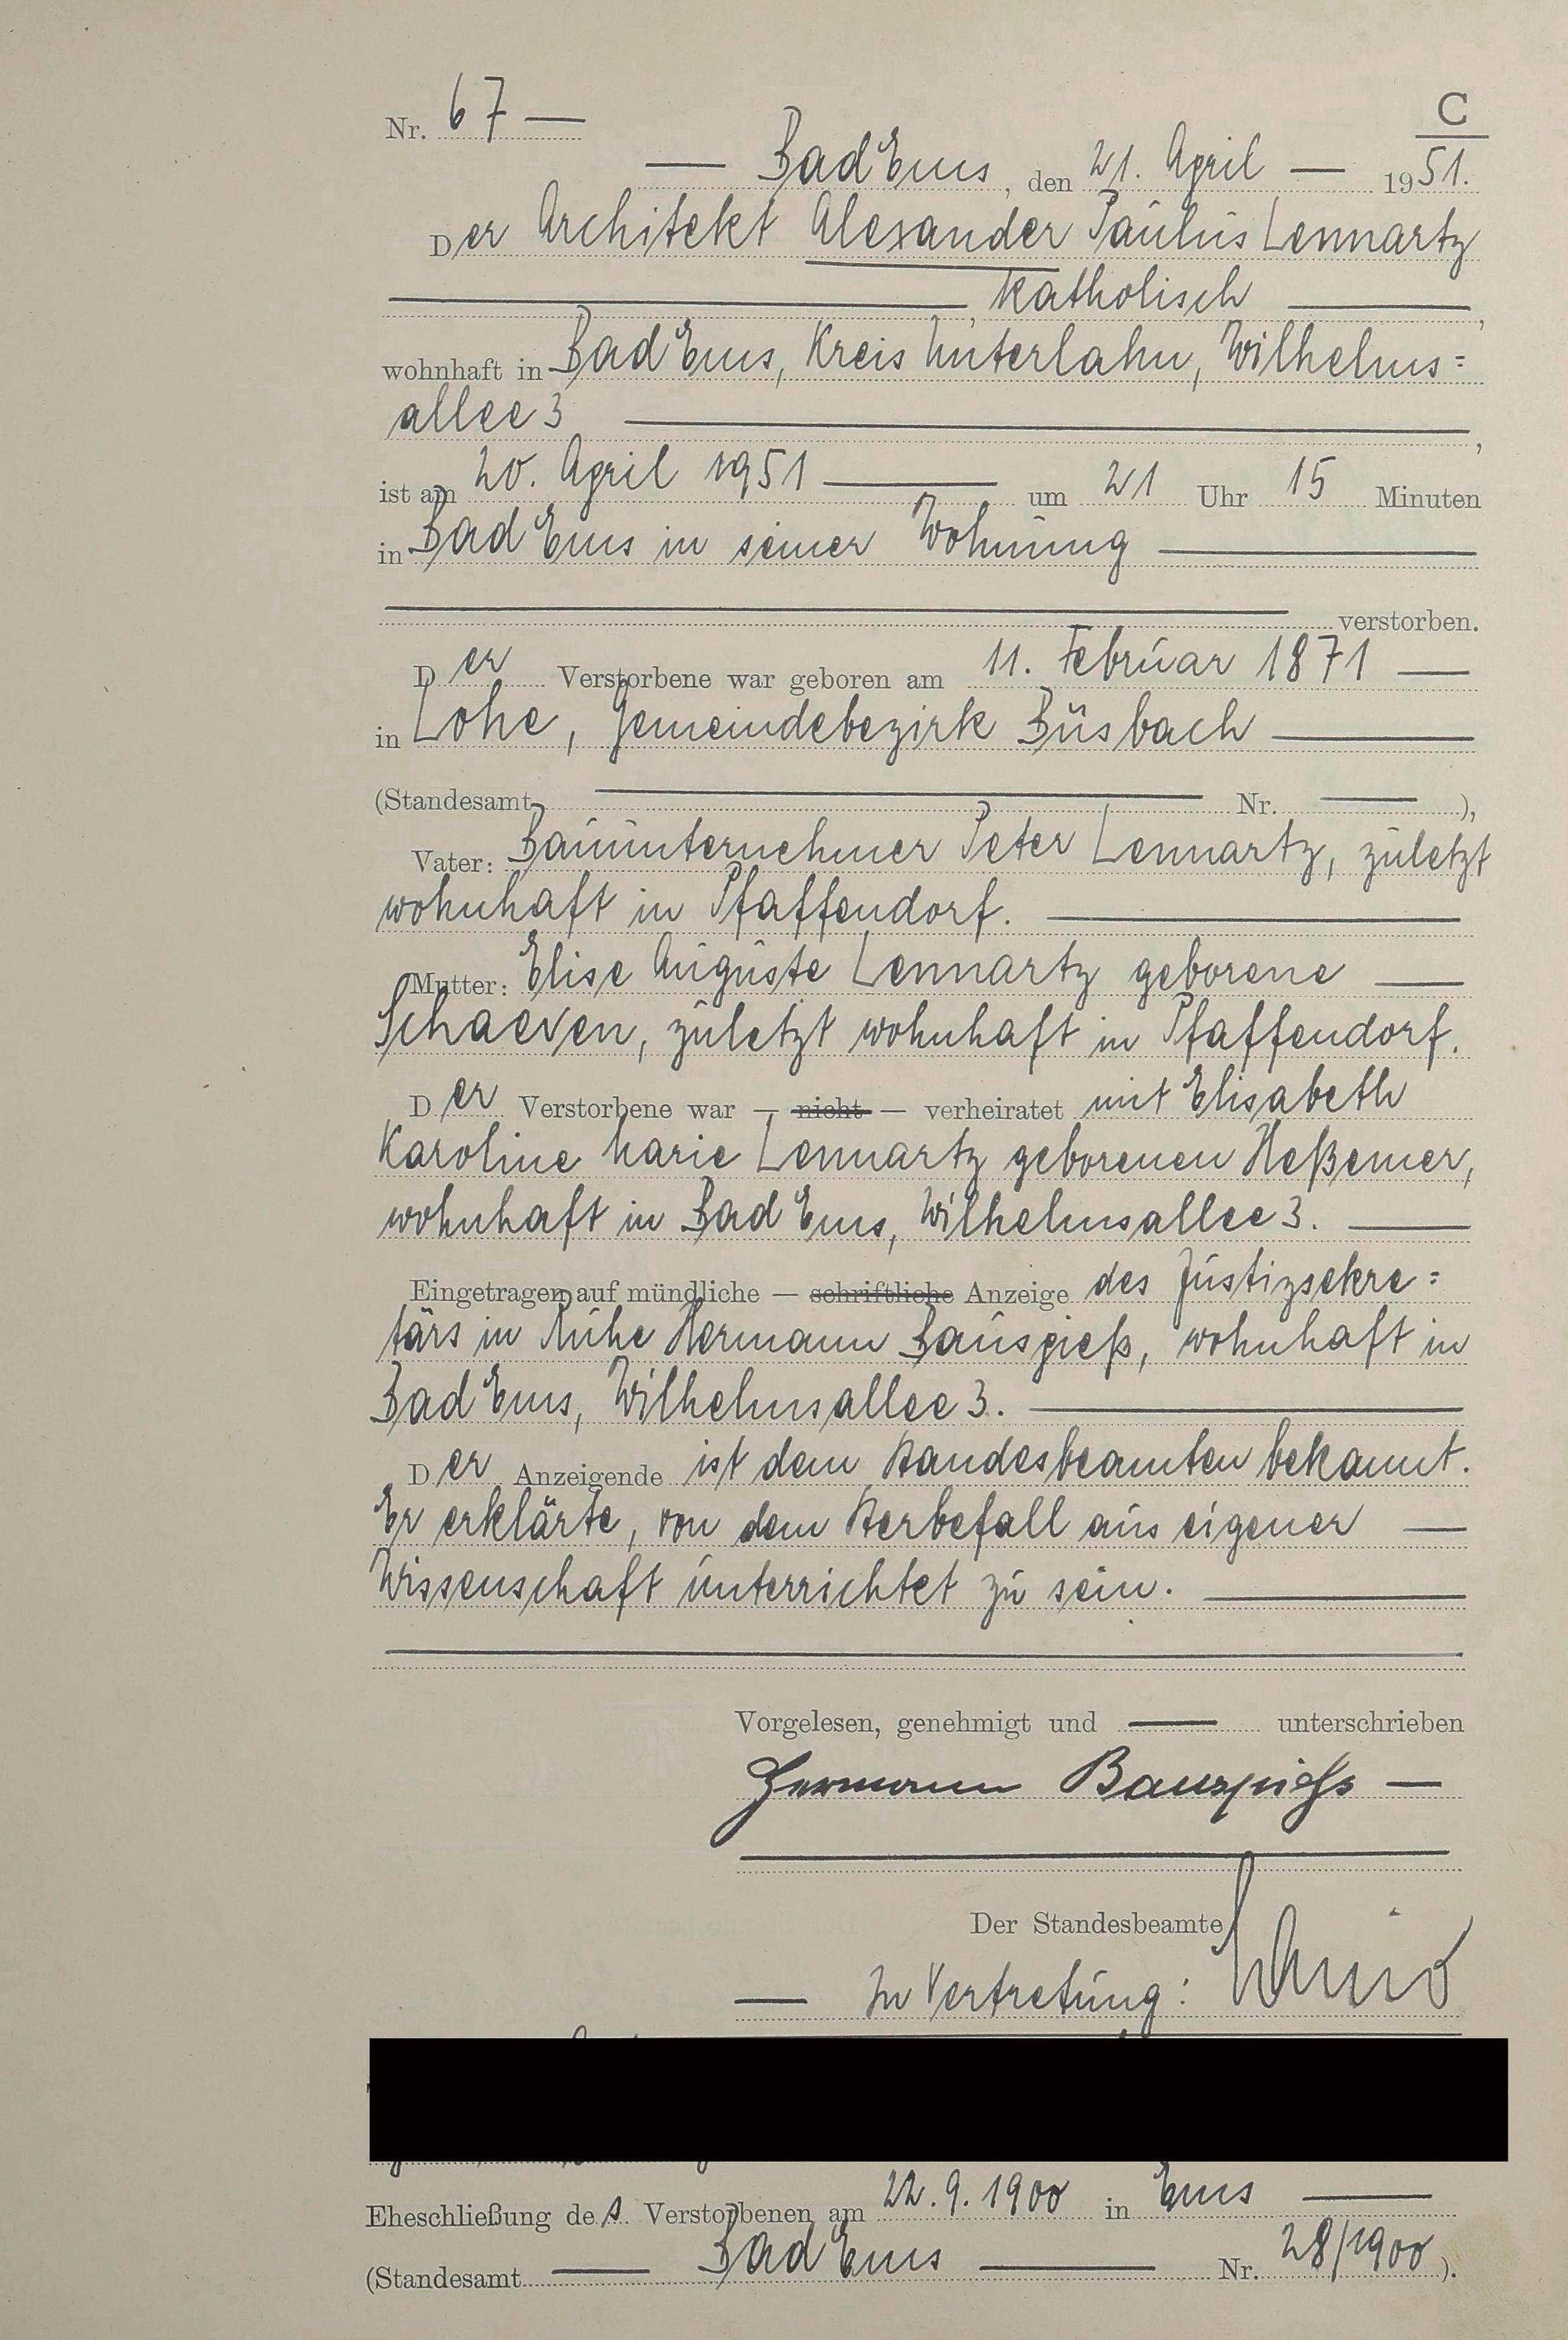 C
Nr. 67 —
— Bad Ems, den 21. April — 1951.
Der Architekt Alexander Paulus Lennartz
—, katholisch —,
wohnhaft in Bad Ems, Kreis Unterlahn, Wilhelms=
allee 3 —,
ist am 20. April 1951 — um 21 Uhr 15 Minuten
in Bad Ems in seiner Wohnung —
— verstorben.
Der Verstorbene war geboren am 11. Februar 1871 —
in Lohe, Gemeindebezirk Büsbach —
(Standesamt — Nr. —),
Vater: Bauunternehmer Peter Lennartz, zuletzt
wohnhaft in Pfaffendorf. —
Mutter: Elise Auguste Lennartz geborene —
Schaeven, zuletzt wohnhaft in Pfaffendorf.
Der Verstorbene war — nicht — verheiratet mit Elisabeth
Karoline Marie Lennartz geborenen Heßemer,
wohnhaft in Bad Ems, Wilhelmsallee 3. —
Eingetragen auf mündliche — schriftliche Anzeige des Justizsekre=
tärs in Ruhe Hermann Bauspieß, wohnhaft in
Bad Ems, Wilhelmsallee 3. —
Der Anzeigende ist dem Standesbeamten bekannt.
Er erklärte, von dem Sterbefall aus eigener —
Wissenschaft unterrichtet zu sein. —
Vorgelesen, genehmigt und — unterschrieben
Hermann Bauspieß —
Der Standesbeamte
— In Vertretung:
Eheschließung des Verstorbenen am 22.9.1900 in Ems —
(Standesamt — Bad Ems — Nr. 28/1900).